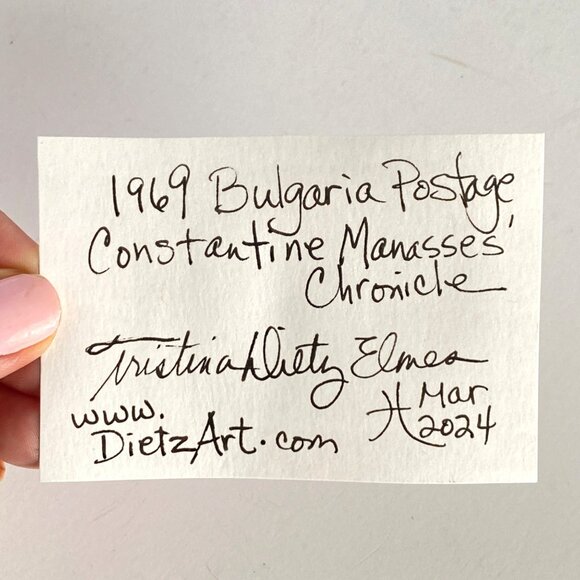 1969 Bulgaria Postage
Constantine Manasses'
Chronicle
Tristina Dietz Elmes
www.
DietzArt.com
Mar
2024